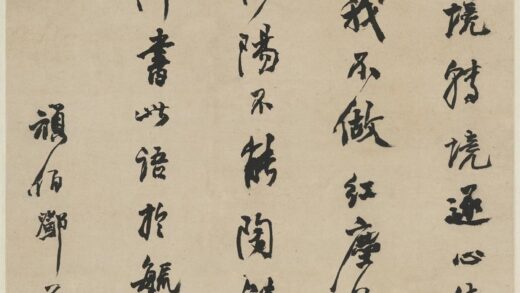 境轉境逐心
我不做紅塵
陽不能陶
書此語於
頑伯鄧